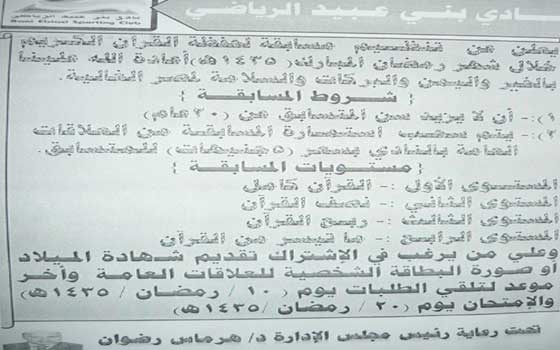 نادي بني عبيد الرياضي
نادى بنى عبيد الرياضى
Bani Ebied Sporting Club
يعلن عن تنظيم مسابقة لحفظة القرآن الكريم
خلال شهر رمضان المبارك (١٤٣٥هـ) أعاده الله علينا
بالخير واليمن والبركات والسلامة لمصر الغالية.
{ شروط المسابقة }
١):- أن لا يزيد سن المتسابق عن (٢٠عام)
٢):- يتم سحب استمارة المسابقة من العلاقات
العامة بالنادي بسعر (٥جنيهات) للمتسابق.
{ مستويات المسابقة }
المستوى الأول :- القرآن كامل
المستوى الثاني :- نصف القرآن
المستوى الثالث :- ربع القرآن
المستوى الرابع :- ما تيسر من القرآن
وعلي من يرغب في الإشتراك تقديم شهادة الميلاد
او صورة البطاقة الشخصية للعلاقات العامة وأخر
موعد لتلقي الطلبات يوم (١٠ / رمضان / ١٤٣٥هـ)
والإمتحان يوم (٢٠ / رمضان /١٤٣٥هـ)
تحت رعاية رئيس مجلس الإدارة د/ هرماس رضوان